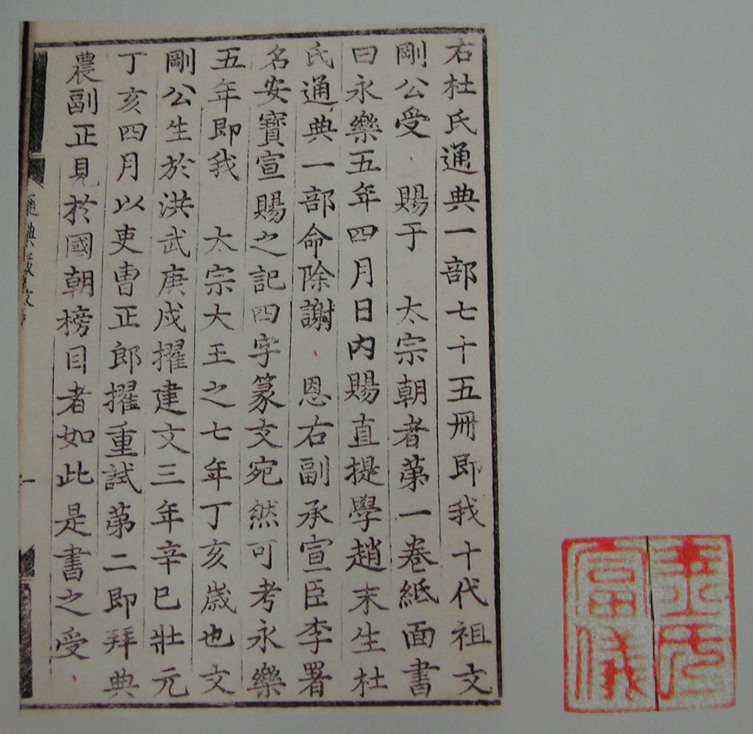 右杜氏通典一部七十五冊即我十代祖文
剛公受 賜于 太宗朝者第一卷紙面書
曰永樂五年四月日內賜直提學趙末生杜
氏通典一部命除謝 恩右副承宣臣李署
名安寶宣賜之記四字篆文宛然可考永樂
五年即我 太宗大王之七年丁亥歲也文
剛公生於洪武庚戌擢建文三年辛巳壯元
丁亥四月以吏曹正郎擢重試第二即拜典
農副正見於國朝榜目者如此是書之受
通典
一
富儀